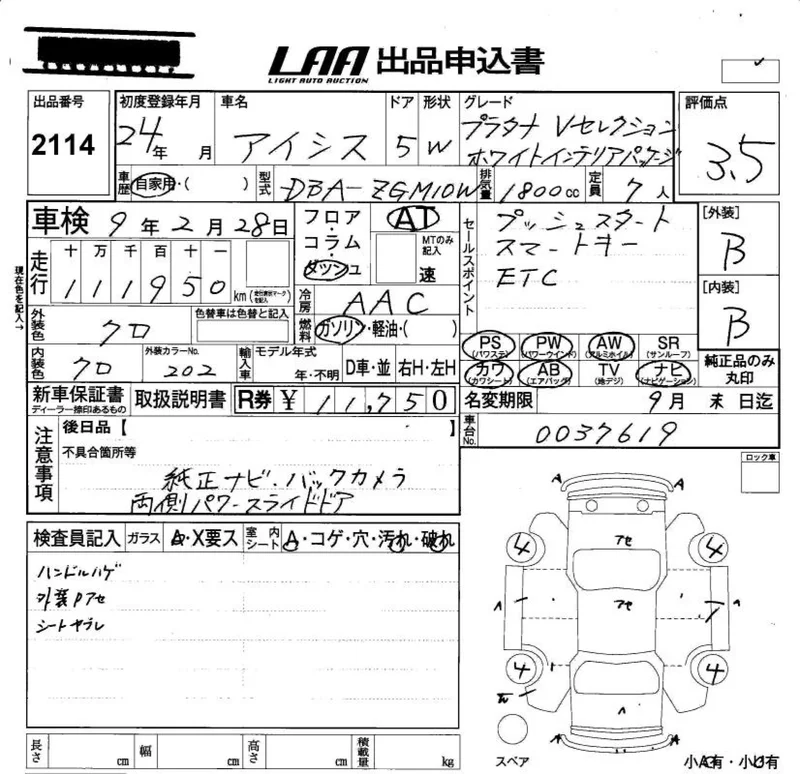 LAA 出品申込書
LIGHT AUTO AUCTION
出品番号 初度登録年月 車名 ドア 形状 グレード 評価点
2114 24年 月 アイシス 5 W プラタナ Vセレクション 3.5
ホワイトインテリアパッケージ
車歴 自家用・( ) 型式 DBA-ZGM10W 排気量 1800cc 定員 7人
車検 9年2月28日 フロア・コラム・ダッシュ AT MTのみ記入 速
セールスポイント プッシュスタート
スマートキー
ETC
[外装] B
[内装] B
走行 十 万 千 百 十 一
111950 km (走行距離マークを記入)
現在色を記入→
冷房 AAC
外装色 クロ 色替車は色替と記入 燃料 ガソリン・軽油・( )
PS (パワステ) PW (パワーウインド) AW (アルミホイル) SR (サンルーフ)
カワ (カワシート) AB (エアバッグ) TV (地デジ) ナビ (ナビゲーション)
純正品のみ丸印
内装色 クロ 外装カラーNo. 202 輸入車 モデル年式 年・不明 D車・並 右H・左H
新車保証書 ディーラー捺印あるもの 取扱説明書 R券 ¥ 11,750 名変期限 9月 末 日迄
車台No. 0037619
注意事項 後日品【 】
不具合箇所等
純正ナビ・バックカメラ
両側パワースライドドア
ロック車
検査員記入 ガラス A・X要ス 室内シート A・コゲ・穴・汚れ・破れ
ハンドルハゲ
外装Pアセ
シートヤブレ
A A
アセ
4 4
アセ
A A
4 4
A
A A
スペア
長さ cm 幅 cm 高さ cm 積載量 kg
小A有・小U有